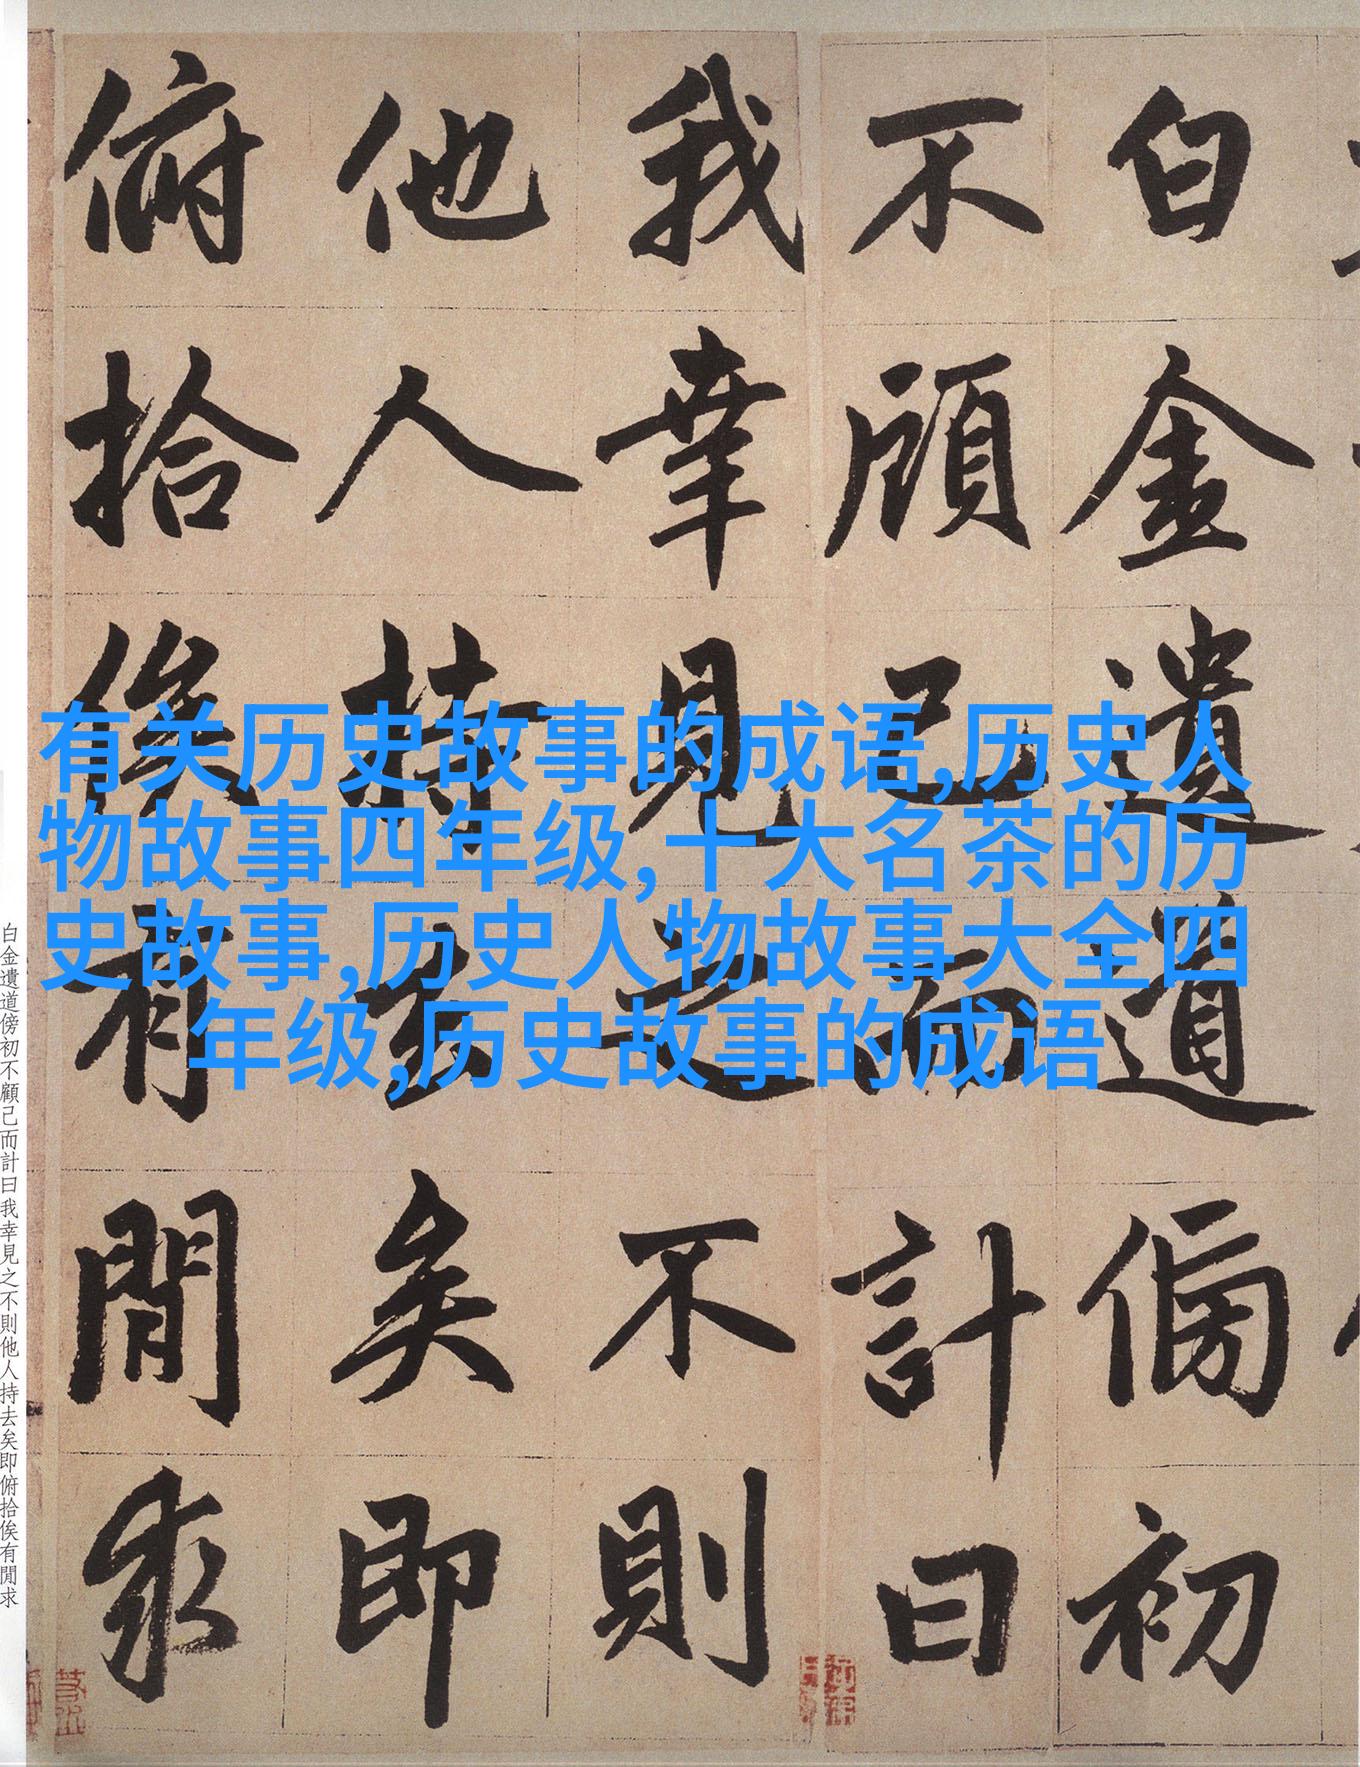 白金遺道傍初
不顧己而計曰
我幸見之不則
他人持去矣即
俯拾俟有閒求
有关历史故事的成语,历史人
物故事四年级,十大名茶的历
史故事,历史人物故事大全四
年级,历史故事的成语
白金遺道傍初不顧己而計曰我幸見之不則他人持去矣即俯拾俟有閒求